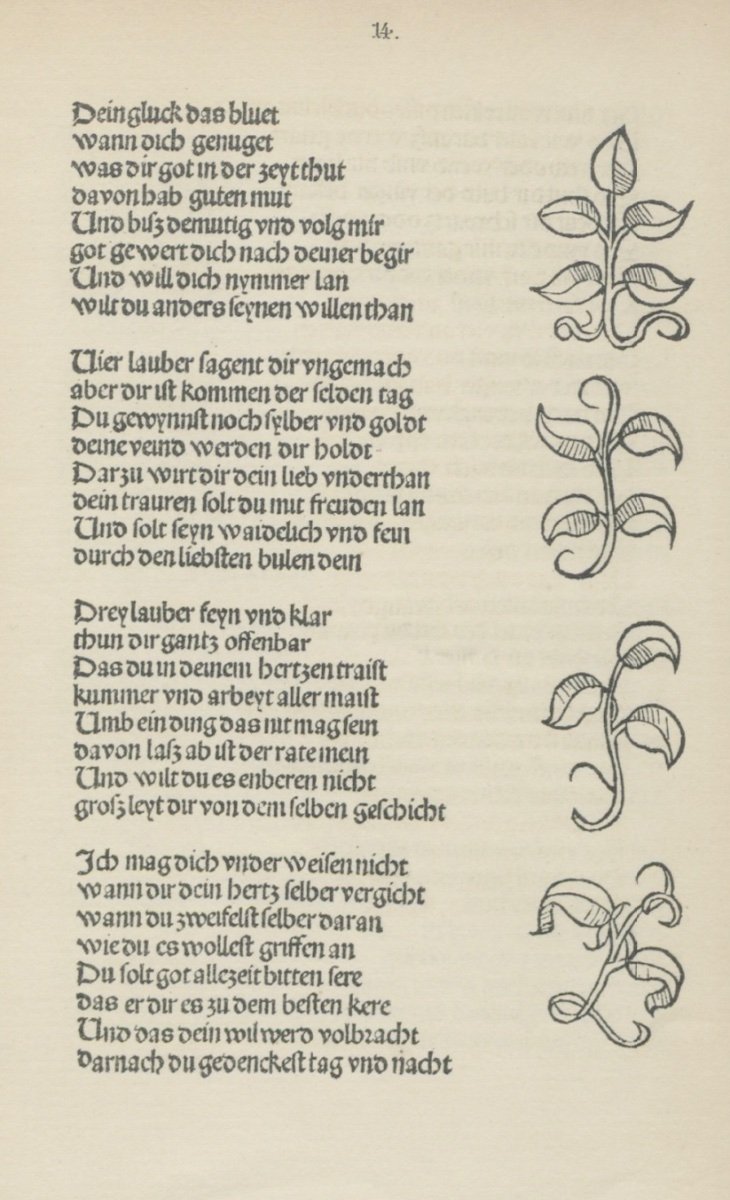 14.
Dein gluck das bluet
wann dich genuget
was dir got in der zeyt thut
davon hab guten mut
Und bisz demutig vnd volg mir
got gewert dich nach deiner begir
Und will dich nymmer lan
wilt du anders seynen willen than
Uier lauber sagent dir vngemach
aber dir ist kommen der selden tag
Du gewynnst noch sylber vnd goldt
deine veind werden dir holdt
Darzu wirt dir dein lieb vnderthan
dein trauren solt du mit freuden lan
Und solt seyn waidelich vnd fein
durch den liebsten bulen dein
Drey lauber feyn vnd klar
thun dir gantz offenbar
Das du in deinem hertzen traist
kummer vnd arbeyt aller maist
Umb ein ding das nit mag sein
davon lasz ab ist der rate mein
Und wilt du es enberen nicht
grosz leyt dir von dem selben geschicht
Ich mag dich vnder weisen nicht
wann dir dein hertz selber vergicht
wann du zweifelst selber daran
wie du es wollest griffen an
Du solt got allezeit bitten sere
das er dir es zu dem besten kere
Und das dein wil werd volbracht
darnach du gedenckest tag vnd nacht